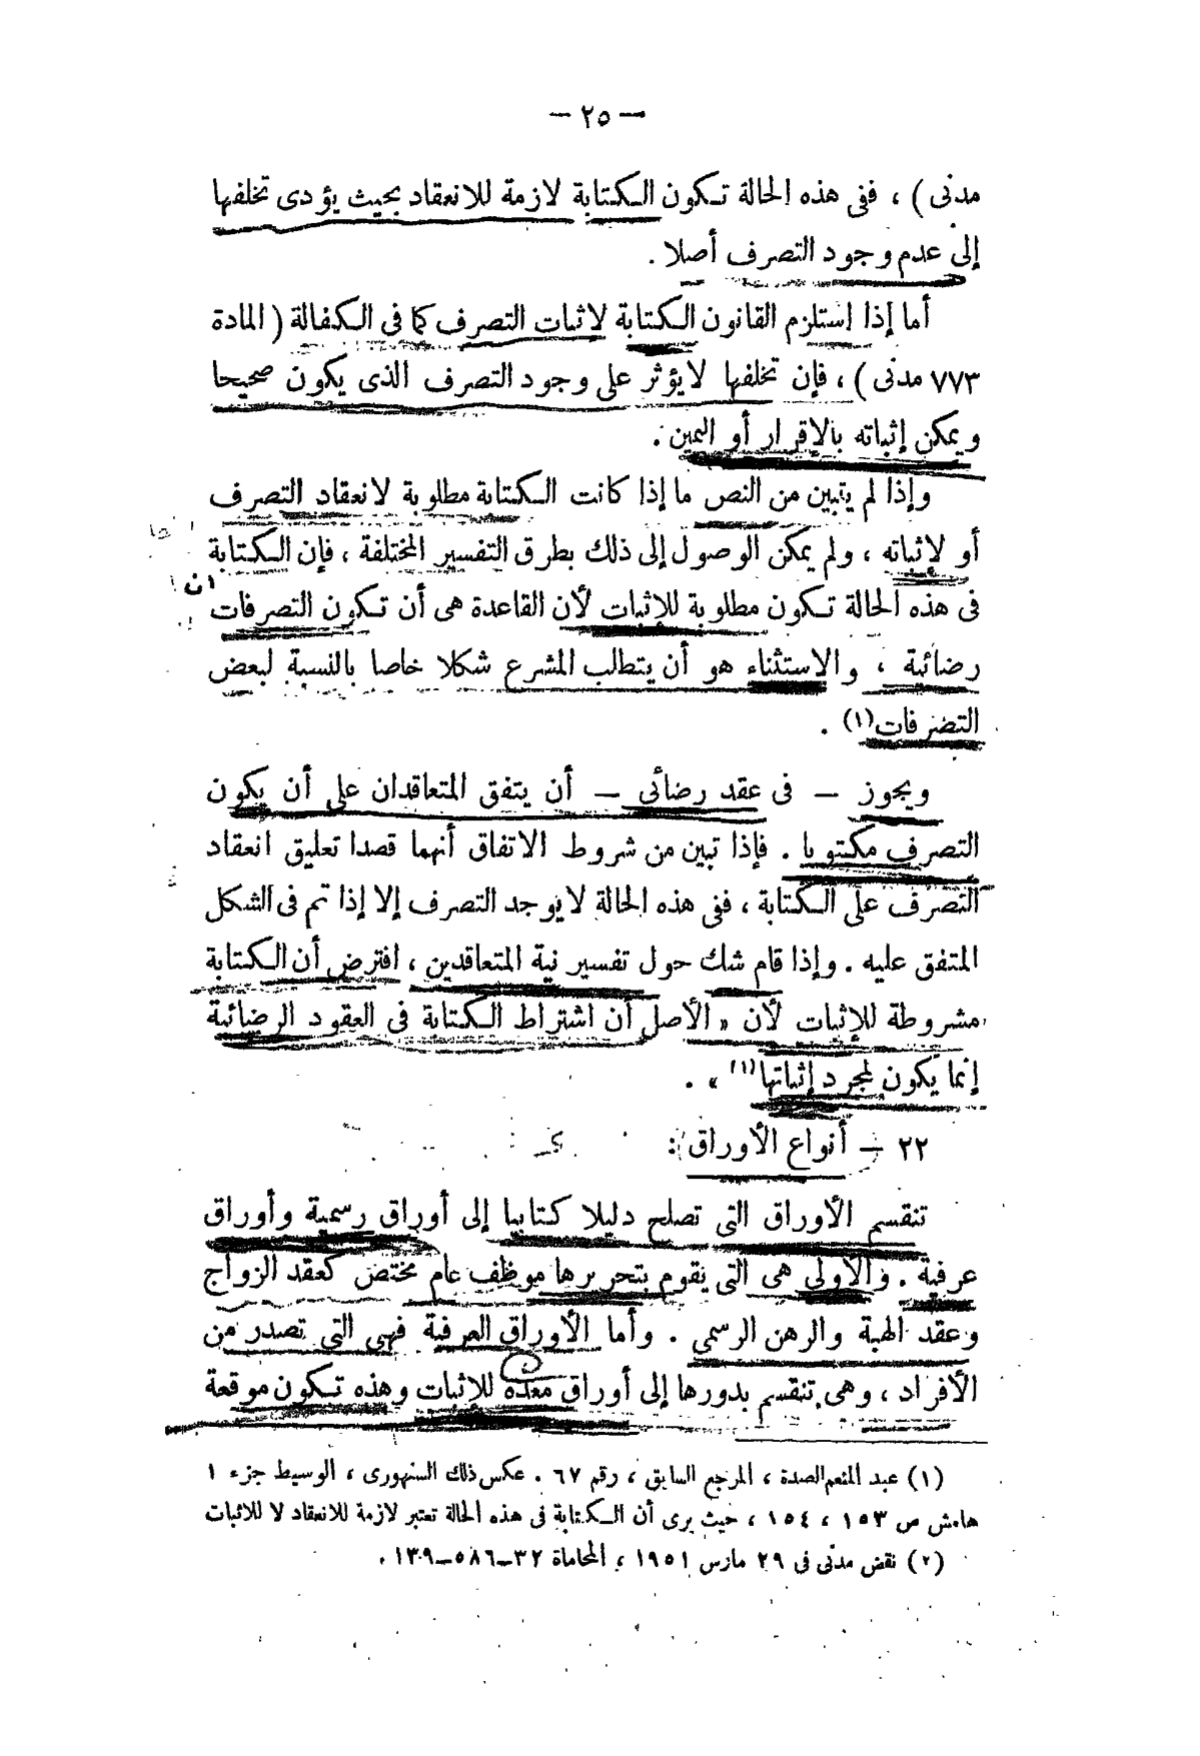 — ٢٥ —
مدنى ) ، ففى هذه الحالة تكون الكتابة لازمة للانعقاد بحيث يؤدى تخلفها
إلى عدم وجود التصرف أصلا .
أما إذا استلزم القانون الكتابة لاثبات التصرف كما فى الكفالة ( المادة
٧٧٣ مدنى ) ، فإن تخلفها لا يؤثر على وجود التصرف الذى يكون صحيحا
ويمكن إثباته بالإقرار أو اليمين .
وإذا لم يتبين من النص ما إذا كانت الكتابة مطلوبة لانعقاد التصرف
أو لإثباته ، ولم يمكن الوصول إلى ذلك بطرق التفسير المختلفة ، فإن الكتابة
فى هذه الحالة تكون مطلوبة للإثبات لأن القاعدة هى أن تكون التصرفات
رضائية ، والاستثناء هو أن يتطلب المشرع شكلا خاصا بالنسبة لبعض
التصرفات(١) .
ويجوز — فى عقد رضائى — أن يتفق المتعاقدان على أن يكون
التصرف مكتوبا . فإذا تبين من شروط الاتفاق أنهما قصدا تعليق انعقاد
التصرف على الكتابة ، ففى هذه الحالة لا يوجد التصرف إلا إذا تم فى الشكل
المتفق عليه . وإذا قام شك حول تفسير نية المتعاقدين ، افترض أن الكتابة
مشروطة للإثبات لأن « الأصل أن اشتراط الكتابة فى العقود الرضائية
إنما يكون لمجرد إثباتها(١) » .
٢٢ — أنواع الأوراق :
تنقسم الأوراق التى تصلح دليلا كتابيا إلى أوراق رسمية وأوراق
عرفية . والأولى هى التى يقوم بتحريرها موظف عام مختص كعقد الزواج
وعقد الهبة والرهن الرسمى . وأما الأوراق العرفية فهى التى تصدر من
الأفراد ، وهى تنقسم بدورها إلى أوراق معدة للإثبات وهذه تكون موقعة
(١) عبد المنعم الصدة ، المرجع السابق ، رقم ٦٧ . عكس ذلك السنهورى ، الوسيط جزء ١
هامش ص ١٥٣ ، ١٥٤ ، حيث يرى أن الكتابة فى هذه الحالة تعتبر لازمة للانعقاد لا للاثبات
(٢) نقض مدنى فى ٢٩ مارس ١٩٥١ ، المحاماة ٣٢—٥٨٦—١٣٠٩ .